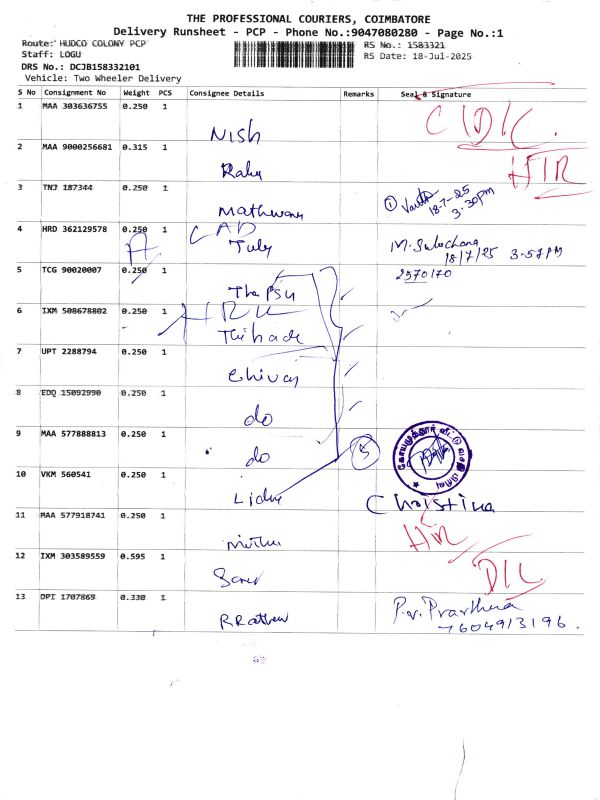 THE PROFESSIONAL COURIERS, COIMBATORE
Delivery Runsheet - PCP - Phone No.:9047080280 - Page No.:1
Route: HUDCO COLONY PCP
RS No.: 1583321
Staff: LOGU
RS Date: 18-Jul-2025
DRS No.: DCJB158332101
Vehicle: Two Wheeler Delivery
S No Consignment No Weight PCS Consignee Details Remarks Seal & Signature
1 MAA 303636755 0.250 1 Nish
2 MAA 9000256681 0.315 1
HIR
3 TNJ 187344 0.250 1
① 18-7-25
3.30pm
4 HRD 362129578 0.250 1 July
M. Sulochana
18/7/25 3-57PM
5 TCG 90020007 0.250 1
2570170
6 IXM 508678802 0.250 1
7 UPT 2288794 0.250 1 Shivas
8 EDQ 15092990 0.250 1 do
9 MAA 577888813 0.250 1 do
5
10 VKM 560541 0.250 1
Christina
11 MAA 577918741 0.250 1
12 IXM 303589559 0.595 1
D/L
13 DPI 1707869 0.330 1
7604913196.